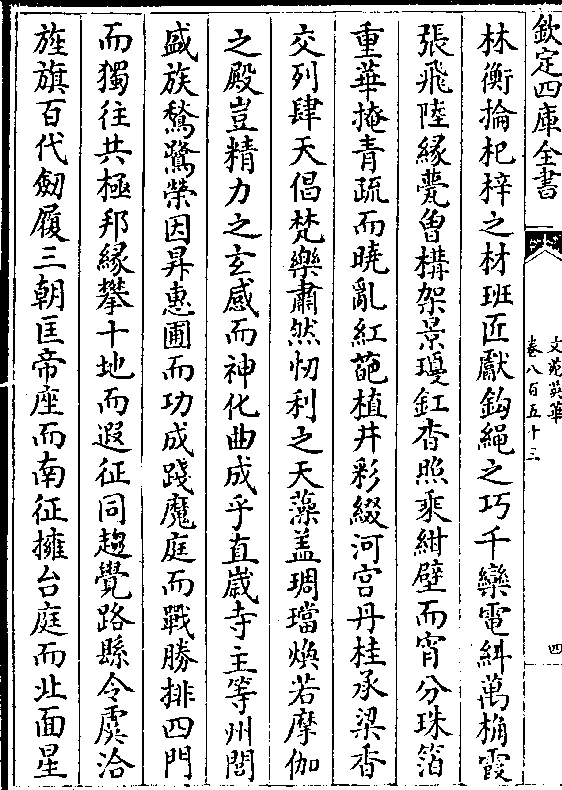 欽定四庫全書
文苑英華
卷八百五十三
四
林衡掄杞梓之材班匠獻鈎繩之巧千欒電糾萬桷霞
張飛陸緣甍曾構架景瓊釭杳照乘紺壁而宵分珠箔
重華掩青疏而曉亂紅葩植井彩綴河宫丹桂承梁香
交列肆天倡梵樂肅然忉利之天藻盖琱璫煥若摩伽
之殿豈精力之玄感而神化曲成乎直歲寺主等州閭
盛族鶖鷺榮因昇惠圃而功成踐魔庭而戰勝排四門
而獨往共極邦緣攀十地而遐征同趨覺路縣令虞洽
旌旗百代劒履三朝匡帝座而南征擁台庭而北面星